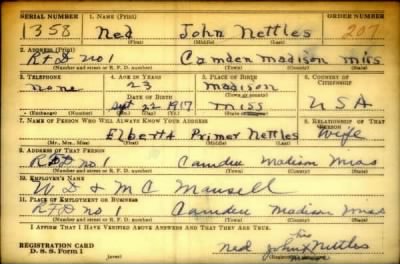 SERIAL NUMBER 1. NAME (Print) ORDER NUMBER
1358 Ned John Nettles 207
(First) (Middle) (Last)
2. ADDRESS (Print)
R+D no 1 Camden Madison Miss
(Number and street or R. F. D. number) (Town) (County) (State)
3. TELEPHONE 4. AGE IN YEARS 5. PLACE OF BIRTH 6. COUNTRY OF CITIZENSHIP
none 23 Madison
DATE OF BIRTH
Sept 22 1917 Miss USA
(Exchange) (Number) (Mo.) (Day) (Yr.) (State or country)
7. NAME OF PERSON WHO WILL ALWAYS KNOW YOUR ADDRESS 8. RELATIONSHIP OF THAT PERSON
Elberta Primer Nettles Wife
(Mr., Mrs., Miss) (First) (Middle) (Last)
9. ADDRESS OF THAT PERSON
RFD no 1 Camden Madison Miss
(Number and street or R. F. D. number) (Town) (County) (State)
10. EMPLOYER'S NAME
W D & M C Mansell
11. PLACE OF EMPLOYMENT OR BUSINESS
R.F.D no 1 Camden Madison Miss
(Number and street or R. F. D. number) (Town) (County) (State)
I AFFIRM THAT I HAVE VERIFIED ABOVE ANSWERS AND THAT THEY ARE TRUE.
his
REGISTRATION CARD Ned John X Nettles
D. S. S. Form 1 mark